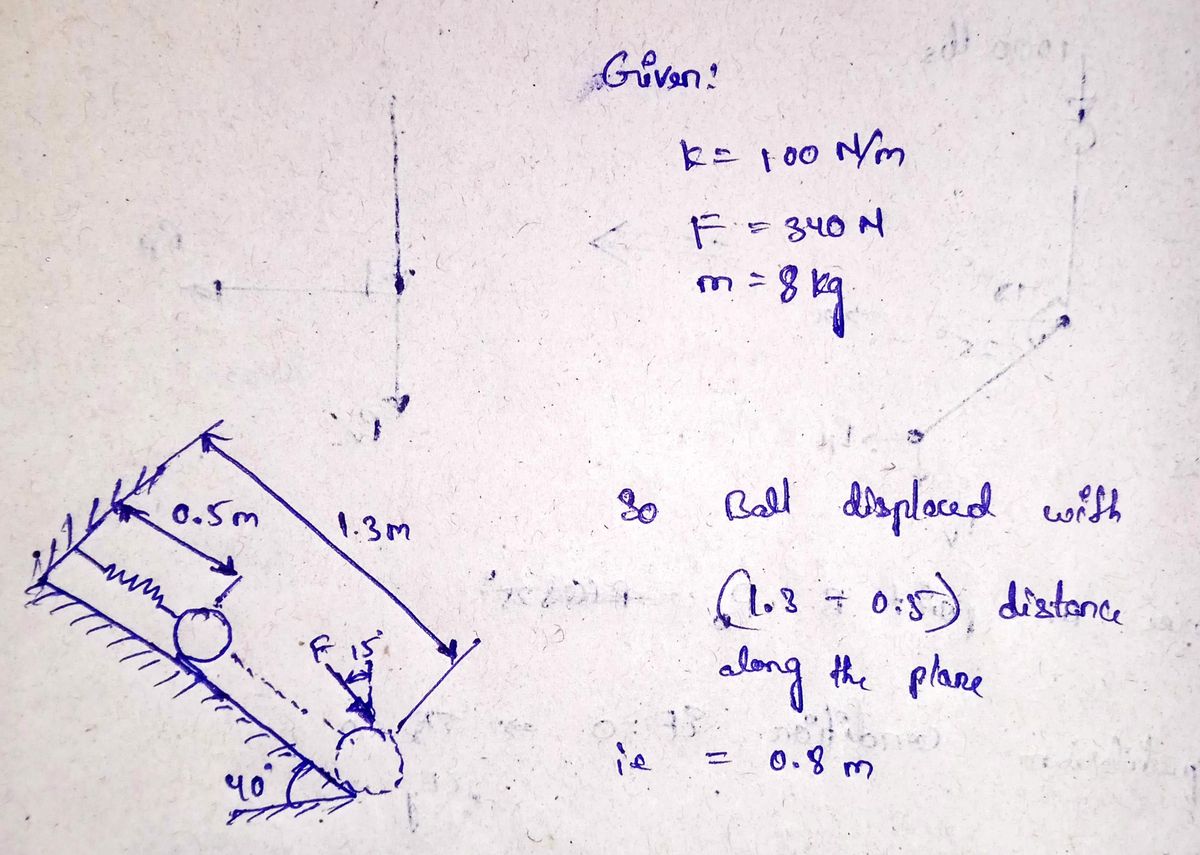 Given:
K = 100 N/m
F = 340 N
m = 8 kg
0.5m
1.3m
So Ball displaced with
(1.3 - 0.5) distance
F 15°
along the plane
ie = 0.8 m
40°